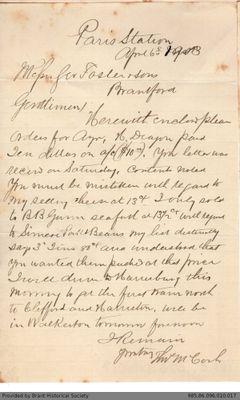 Paris Station
April 6th 1903
Messrs Geo Foster & Sons
Brantford
Gentlemen
Herewith enclose please
Orders for Ayr, H, paid
Ten dollars on a/c ($10.00). Your letter was
received on Saturday. Contents noted
You must be mistaken with regard to
My selling them at 13¢. I only sold
to B B Gunn Seaforth at 13½ ct with regard
to Simcoe Beans my list distinctly
says 3 Tins 80ct and understood that
You wanted them pushed at this price
I will drive to Harrisburg this
morning to get the first train north
to Clifford and Harriston, will be
in Walkerton tomorrow forenoon
I Remain
Yours truly
Thos McCosh
Provided by Brant Historical Society
RBS.86.096.020.017